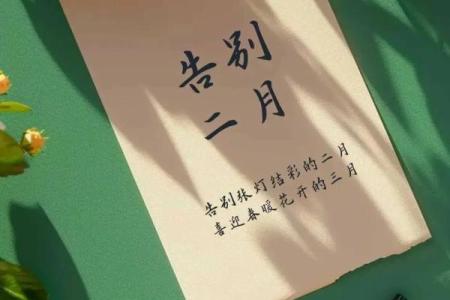 告别
二月
告别张灯结彩的二月
喜迎春暖花开的三月